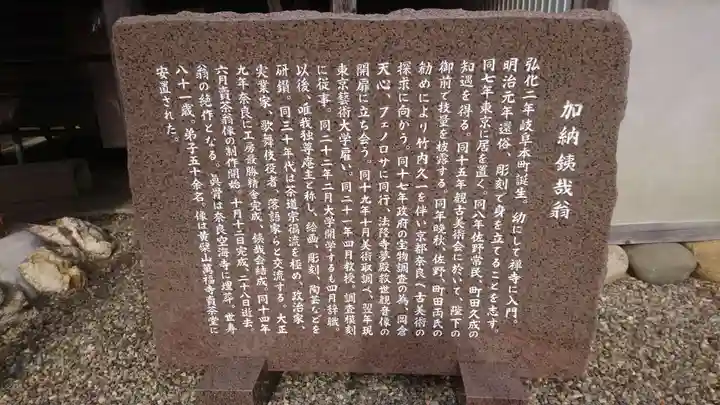 加納鉄哉翁
弘化二年岐阜本町誕生。幼にして禅寺に入門。
明治元年還俗、彫刻で身を立てることを志す。
同七年東京に居を置く。同八年佐野常民、町田久成の
知遇を得る。同十五年観古美術会に於いて、陛下の
御前で技量を披露する。同年晩秋、佐野、町田両氏の
勧めにより竹内久一を伴い京都奈良へ古美術の
探求に向かう。同十七年政府の宝物調査の為、岡倉
天心、フェノロサに同行、法隆寺夢殿救世観音像の
開扉に立ち会う。同十九年十月美術取調べ、翌年現
東京藝術大学雇い。同二十一年四月教授。調査模刻
に従事。同二十二年二月大学開学するも四月辞職。
以後、唯我独尊庵主と称し、絵画、彫刻、陶芸などを
研鑽。同三十年代は茶道宗徧流を極め、政治家、
実業家、歌舞伎役者、落語家らと交流する。大正
九年奈良に工房最勝精舎完成、鉄哉会結成。同十四年
六月賣茶翁像の制作開始。十月十二日完成、二十八日逝去、
翁の絶作となる。真骨は奈良空海寺に埋葬、世寿
八十一歳。弟子五十余名。像は黄檗山萬福寺賣茶堂に
安置された。